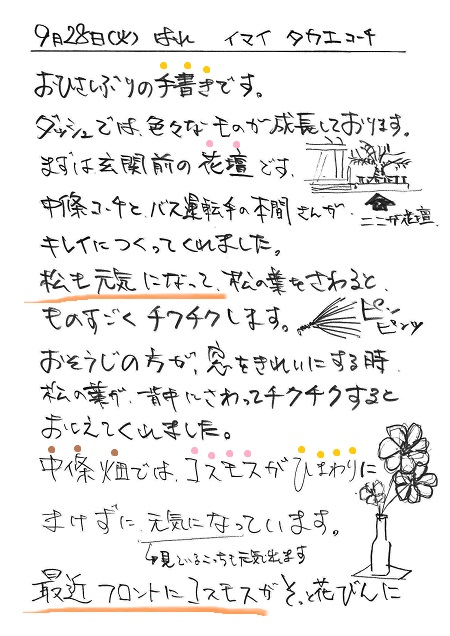 9月28日(火) はれ イマイ タカエコーチ
おひさしぶりの手書きです。
ダッシュでは、色々なものが成長しております。
まずは玄関前の花壇です。
中條コーチと、バス運転手の本間さんが、
ここが花壇。
キレイにつくってくれました。
松も元気になって、松の葉をさわると、
ものすごくチクチクします。
ピン
ピンッ
おそうじの方が、窓をきれいにする時、
松の葉が、背中にさわってチクチクすると
おしえてくれました。
中條畑では、コスモスがひまわりに
まけずに、元気になっています。
↳見ているこっちも元気出ます
最近フロントにコスモスがそっと花びんに